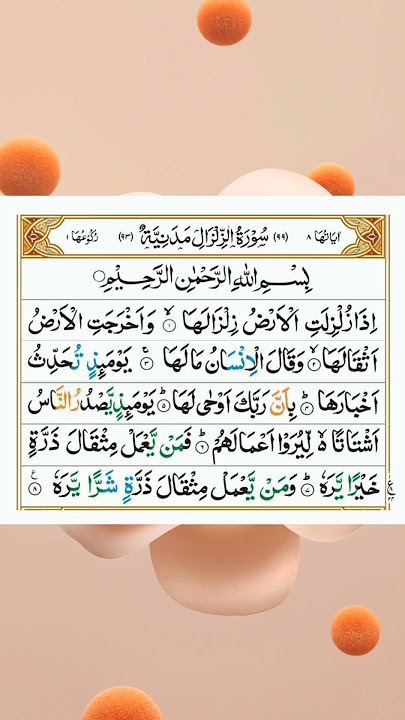 اٰیَاتُهَا ٨ (٩٩) سُوْرَةُ الزِّلْزَالِ مَدَنِیَّةٌ (٩٣) رُكُوْعُهَا ١
بِسْمِ اللّٰهِ الرَّحْمٰنِ الرَّحِیْمِ
اِذَا زُلْزِلَتِ الْاَرْضُ زِلْزَالَهَا ۙ‏﴿١﴾ وَاَخْرَجَتِ الْاَرْضُ
اَثْقَالَهَا ۙ‏﴿٢﴾ وَقَالَ الْاِنْسَانُ مَا لَهَا ۚ‏﴿٣﴾ یَوْمَىِٕذٍ تُحَدِّثُ
اَخْبَارَهَا ۙ‏﴿٤﴾ بِاَنَّ رَبَّكَ اَوْحٰى لَهَا ؕ‏﴿٥﴾ یَوْمَىِٕذٍ یَّصْدُرُ النَّاسُ
اَشْتَاتًا ۙ۬ لِّیُرَوْا اَعْمَالَهُمْ ؕ‏﴿٦﴾ فَمَنْ یَّعْمَلْ مِثْقَالَ ذَرَّةٍ
خَیْرًا یَّرَهٗ ؕ‏﴿٧﴾ وَمَنْ یَّعْمَلْ مِثْقَالَ ذَرَّةٍ شَرًّا یَّرَهٗ ‏﴿٨﴾